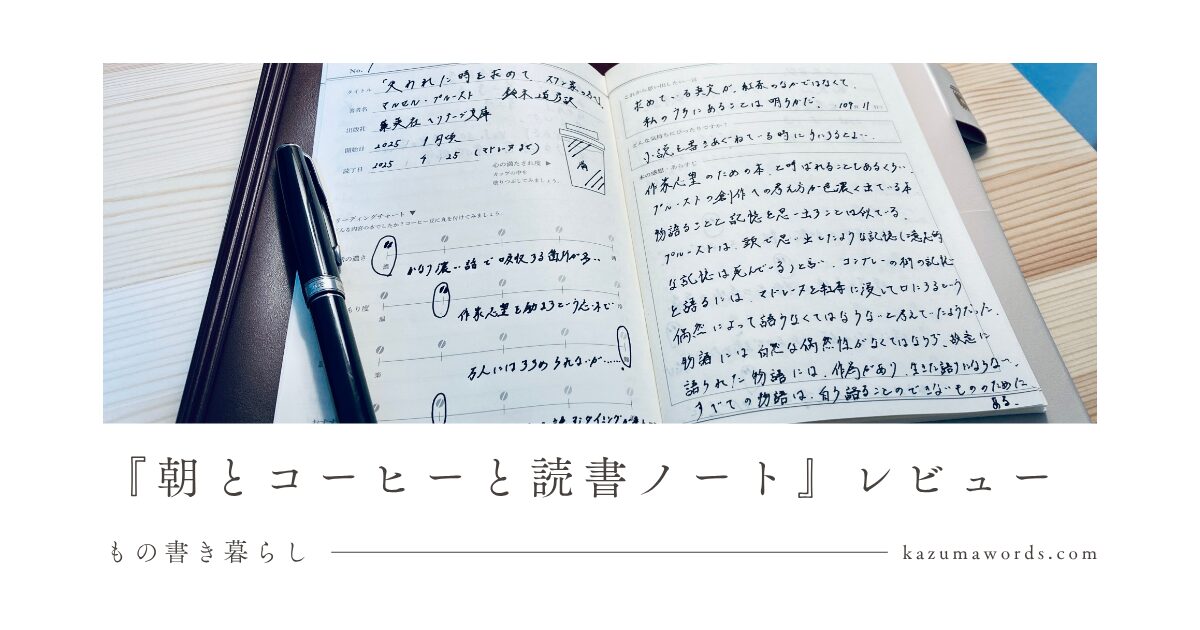 No. 1
タイトル 「失われた時を求めて、スワン家の方へ」
著者名 マルセル・プルースト 鈴木道彦訳
出版社 集英社ヘリテージ文庫
開始日 2025 1月頃
読了日 2025 4 25 (マドレーヌまで)
心の満たされ度 ▶
カップの中を
塗りつぶしてみましょう。
リーディングチャート ▼
どんな内容の本でしたか?コーヒー豆に丸を付けてみましょう。
の濃さ
濃
かなり濃い話で吸収する箇所が多い
もり度
作家志望を励ますという意味で
万人にはすすめられないが……
タイミングが
これから思い出したい一言
求めている真実が、紅茶のなかではなくて、
私のうちにあることは明らかだ。 109P 11
どんな気持ちにぴったりですか?
小説を書きあぐねている時にちょうどよい。
本の感想・あらすじ
作家志望のための本、と呼ばれることもあるくらい、
プルーストの創作への考え方が色濃く出ている本
物語ることと記憶を思い出すことは似ている。
プルーストは、頭で思い出したような記憶(意図的
な記憶は死んでいる)と言い、コンブレーの街の記憶
を語るには、マドレーヌを紅茶に浸して口にするという
偶然によって語らなくてはならないと考えていたようだった。
物語には自然な偶然性がなくてはならず、故意に
語られた物語には、作為があり、生きた語りにならない。
すべての物語は、自ら語ることのできないもののために
ある。
『朝とコーヒーと読書ノート』レビュー
もの書き暮らし
kazumawords.com